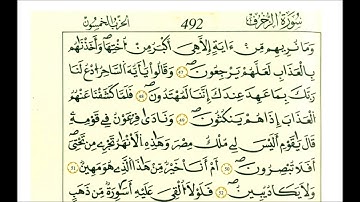 سُورَةُ الزُّخْرُفِ 492 الحِزْبُ الخَمْسُونَ
وَمَا نُرِيهِم مِّنْ ءَايَةٍ إِلَّا هِىَ أَكْبَرُ مِنْ أُخْتِهَا وَأَخَذْنَٰهُم
بِالْعَذَابِ لَعَلَّهُمْ يَرْجِعُونَ ٤٧ وَقَالُوا۟ يَٰٓأَيُّهَ السَّاحِرُ ادْعُ لَنَا
رَبَّكَ بِمَا عَهِدَ عِندَكَ إِنَّنَا لَمُهْتَدُونَ ٤٨ فَلَمَّا كَشَفْنَا عَنْهُمُ
الْعَذَابَ إِذَا هُمْ يَنكُثُونَ ٤٩ وَنَادَىٰ فِرْعَوْنُ فِى قَوْمِهِۦ
قَالَ يَٰقَوْمِ أَلَيْسَ لِى مُلْكُ مِصْرَ وَهَٰذِهِ الْأَنْهَٰرُ تَجْرِى مِن تَحْتِىٓ
أَفَلَا تُبْصِرُونَ ٥٠ أَمْ أَنَا۠ خَيْرٌ مِّنْ هَٰذَا الَّذِى هُوَ مَهِينٌ ٥١
وَلَا يَكَادُ يُبِينُ ٥٢ فَلَوْلَآ أُلْقِىَ عَلَيْهِ أَسَٰوِرَةٌ مِّن ذَهَبٍ